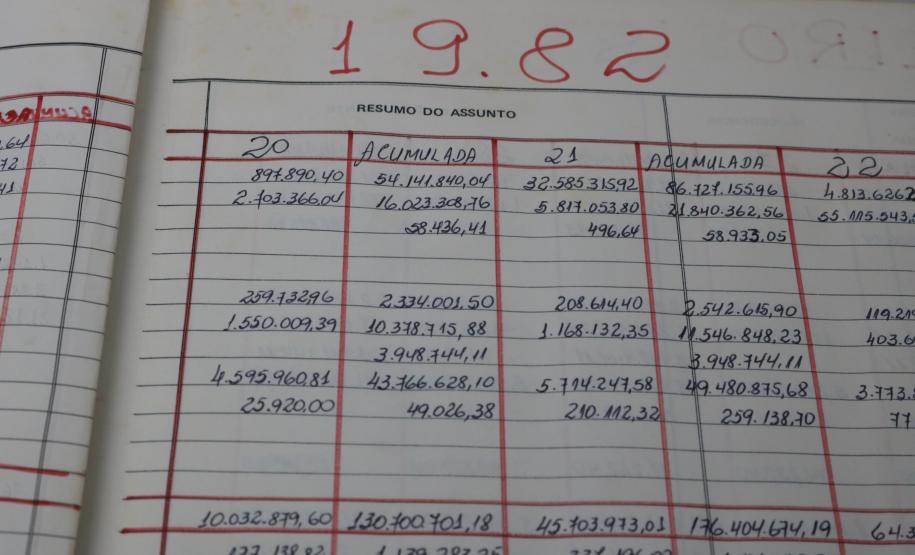 19.82
RESUMO DO ASSUNTO
20 ACUMULADA 21 ACUMULADA 22
.64 897.890.40 54.141.840,04 32.585.315,92 86.727.155.96 4.813.626,2
72 2.703.366,04 16.023.308,76 5.817.053.80 21.840.362,56 55.115.543,
41 58.436,41 496,64 58.933,05
259.732,96 2.334.001,50 208.614,40 2.542.615,90 119.21
1.550.009,39 10.378.715,88 1.168.132,35 11.546.848,23 403.6
3.948.744,11 3.948.744,11
4.595.960,81 43.766.628,10 5.714.247,58 49.480.875,68 3.773.
25.920.00 49.026,38 210.112,32 259.138,70 77
10.032.879,60 130.700.701,18 45.703.973,01 176.404.674,19 64.3